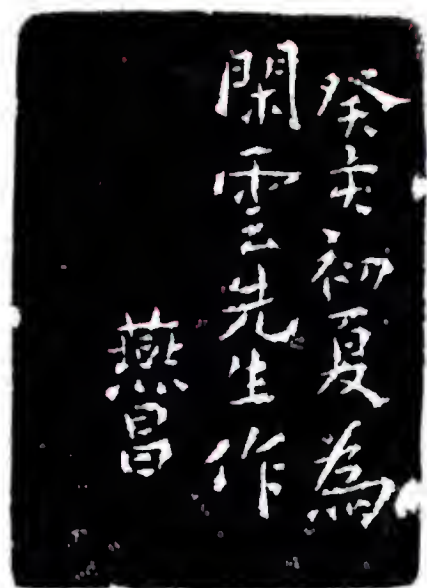 癸亥初夏為
閑雲先生作
燕昌